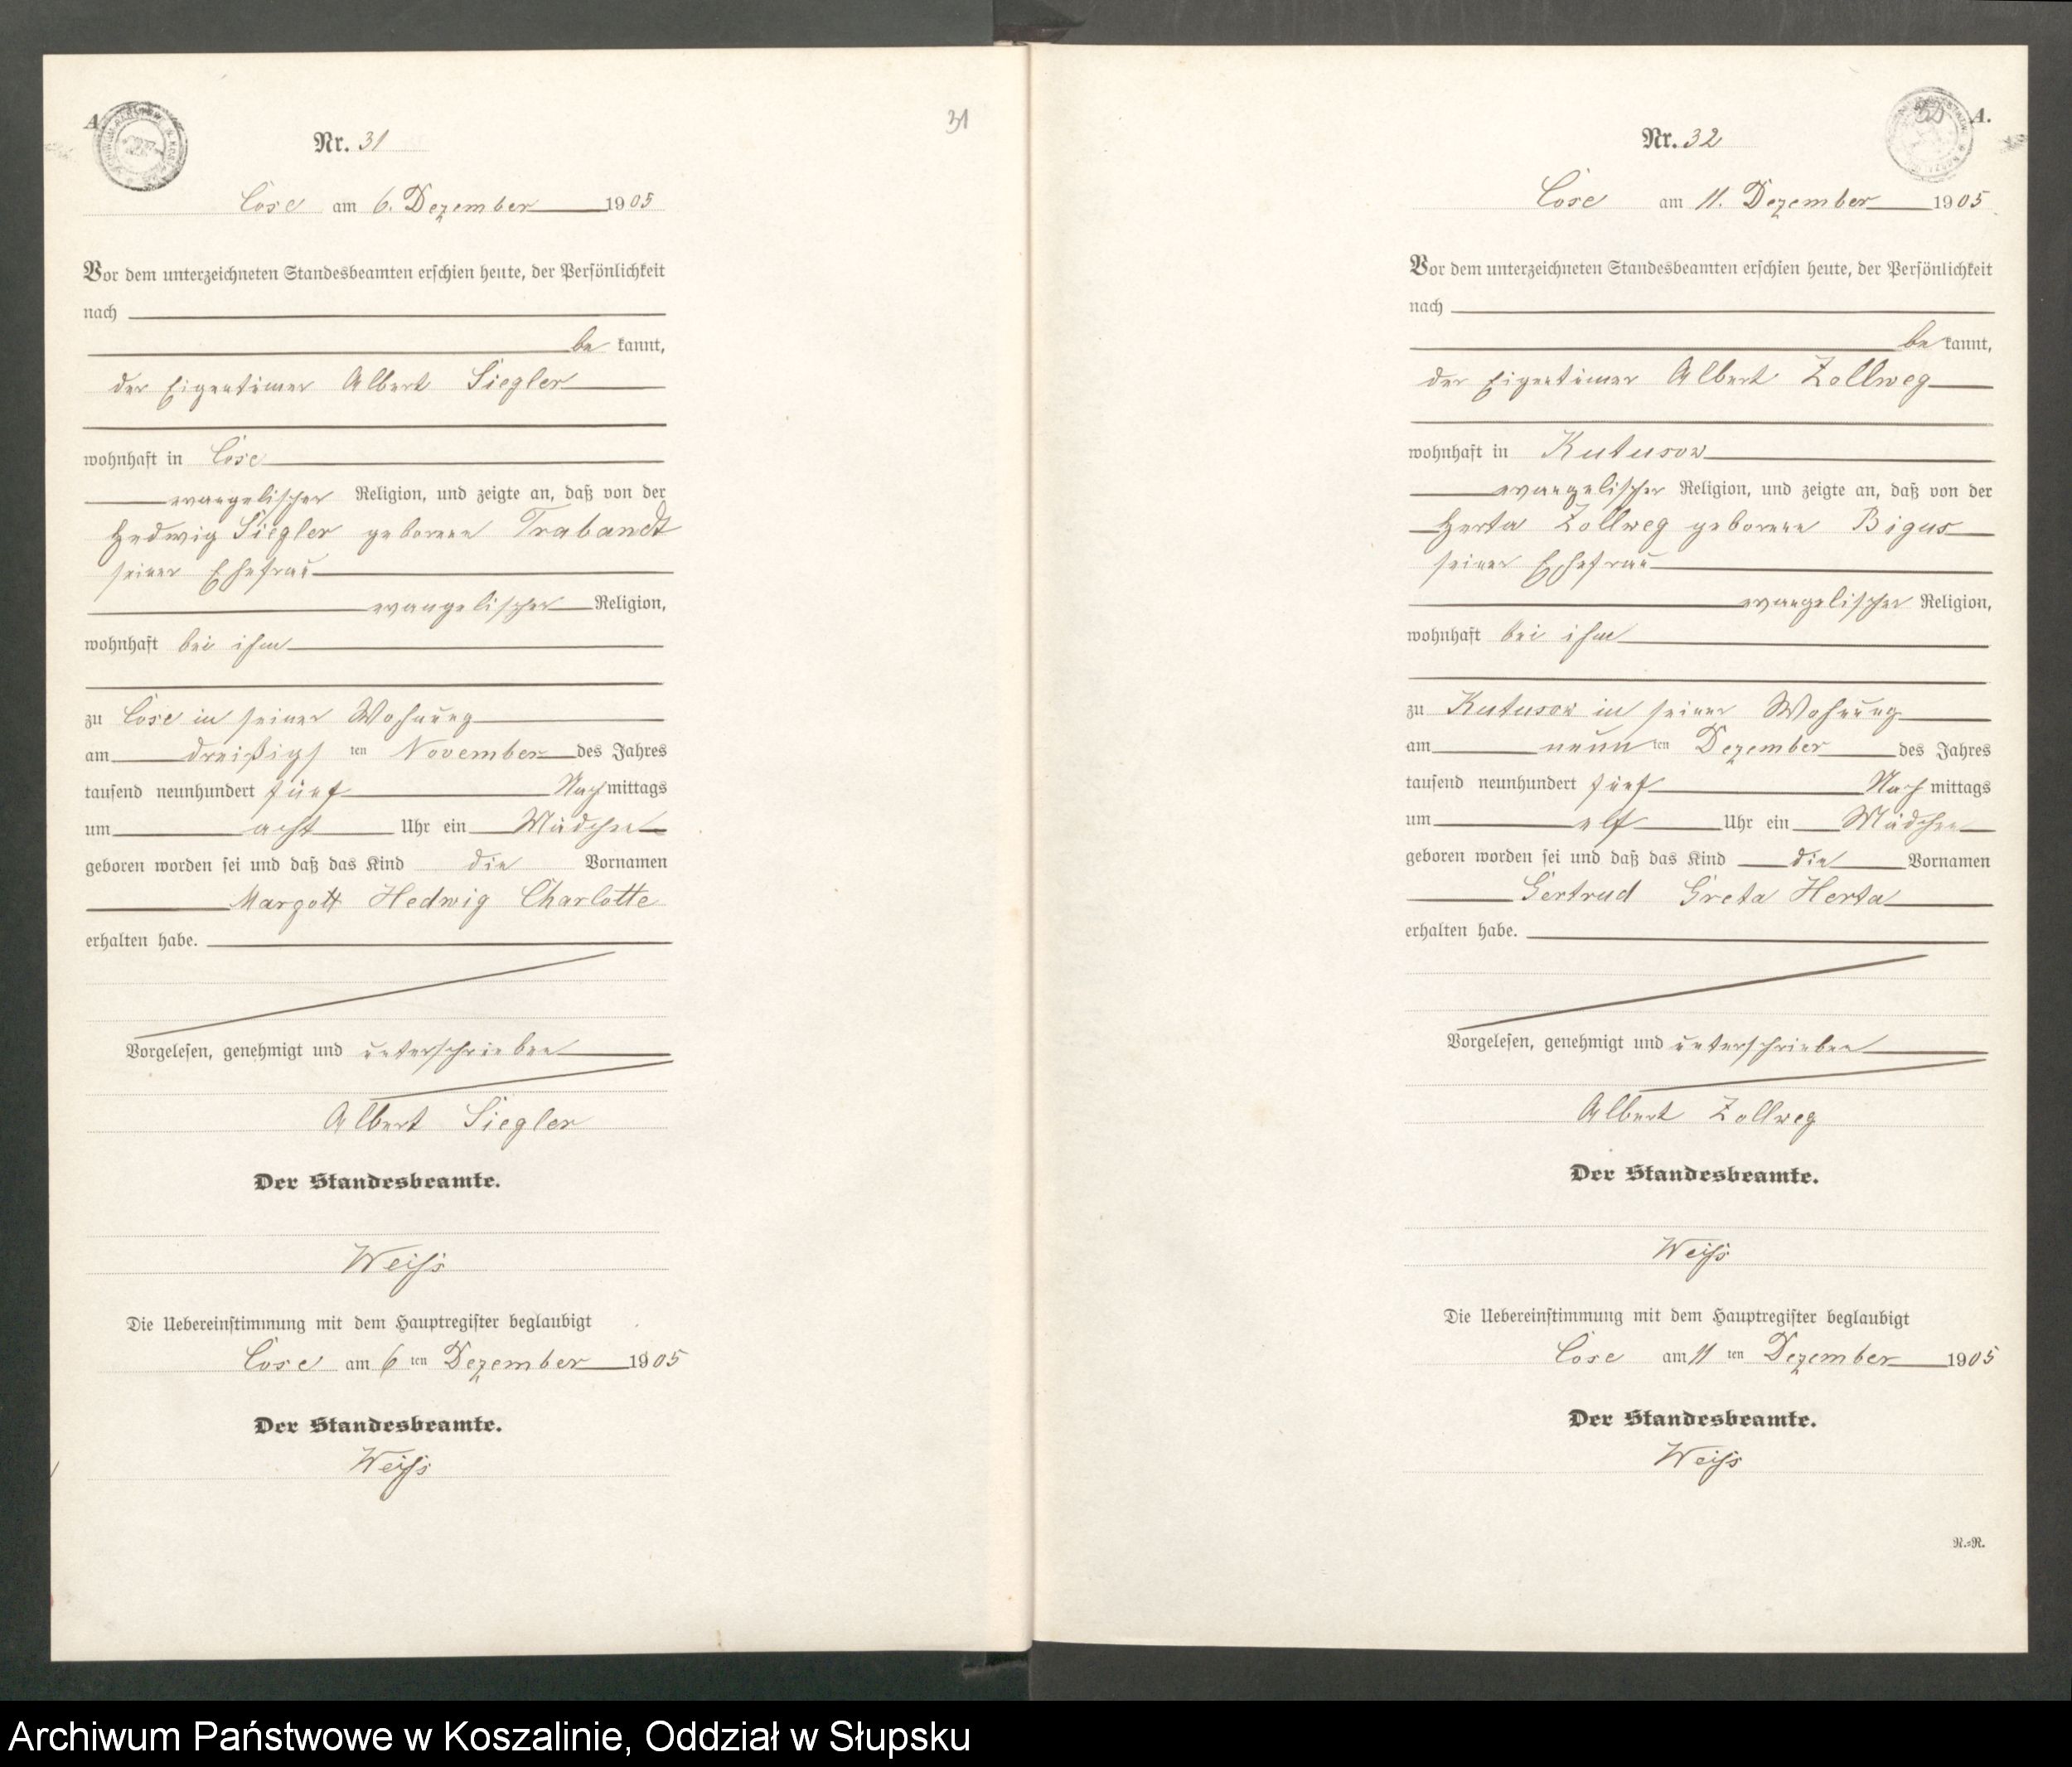 A.
Nr. 31
31
Cose am 6. Dezember 1905
Vor dem unterzeichneten Standesbeamten erschien heute, der Persönlichkeit
nach
be kannt,
der Eigentümer Albert Siegler
wohnhaft in Cose
evangelischer Religion, und zeigte an, daß von der
Hedwig Siegler geborene Trabandt
seiner Ehefrau
evangelischer Religion,
wohnhaft bei ihm
zu Cose in seiner Wohnung
am dreißigs ten November des Jahres
tausend neunhundert fünf Nachmittags
um acht Uhr ein Mädchen
geboren worden sei und daß das Kind die Vornamen
Margott Hedwig Charlotte
erhalten habe.
Vorgelesen, genehmigt und unterschrieben
Albert Siegler
Der Standesbeamte.
Weiß
Die Uebereinstimmung mit dem Hauptregister beglaubigt
Cose am 6 ten Dezember 1905
Der Standesbeamte.
Weiß
32
A.
Nr. 32
Cose am 11. Dezember 1905
Vor dem unterzeichneten Standesbeamten erschien heute, der Persönlichkeit
nach
be kannt,
der Eigentümer Albert Zollweg
wohnhaft in Kutusow
evangelischer Religion, und zeigte an, daß von der
Herta Zollweg geborene Bigus
seiner Ehefrau
evangelischer Religion,
wohnhaft bei ihm
zu Kutusow in seiner Wohnung
am neun ten Dezember des Jahres
tausend neunhundert fünf Nach mittags
um elf Uhr ein Mädchen
geboren worden sei und daß das Kind die Vornamen
Gertrud Greta Herta
erhalten habe.
Vorgelesen, genehmigt und unterschrieben
Albert Zollweg
Der Standesbeamte.
Weiß
Die Uebereinstimmung mit dem Hauptregister beglaubigt
Cose am 11 ten Dezember 1905
Der Standesbeamte.
Weiß
R.=R.
Archiwum Państwowe w Koszalinie, Oddział w Słupsku